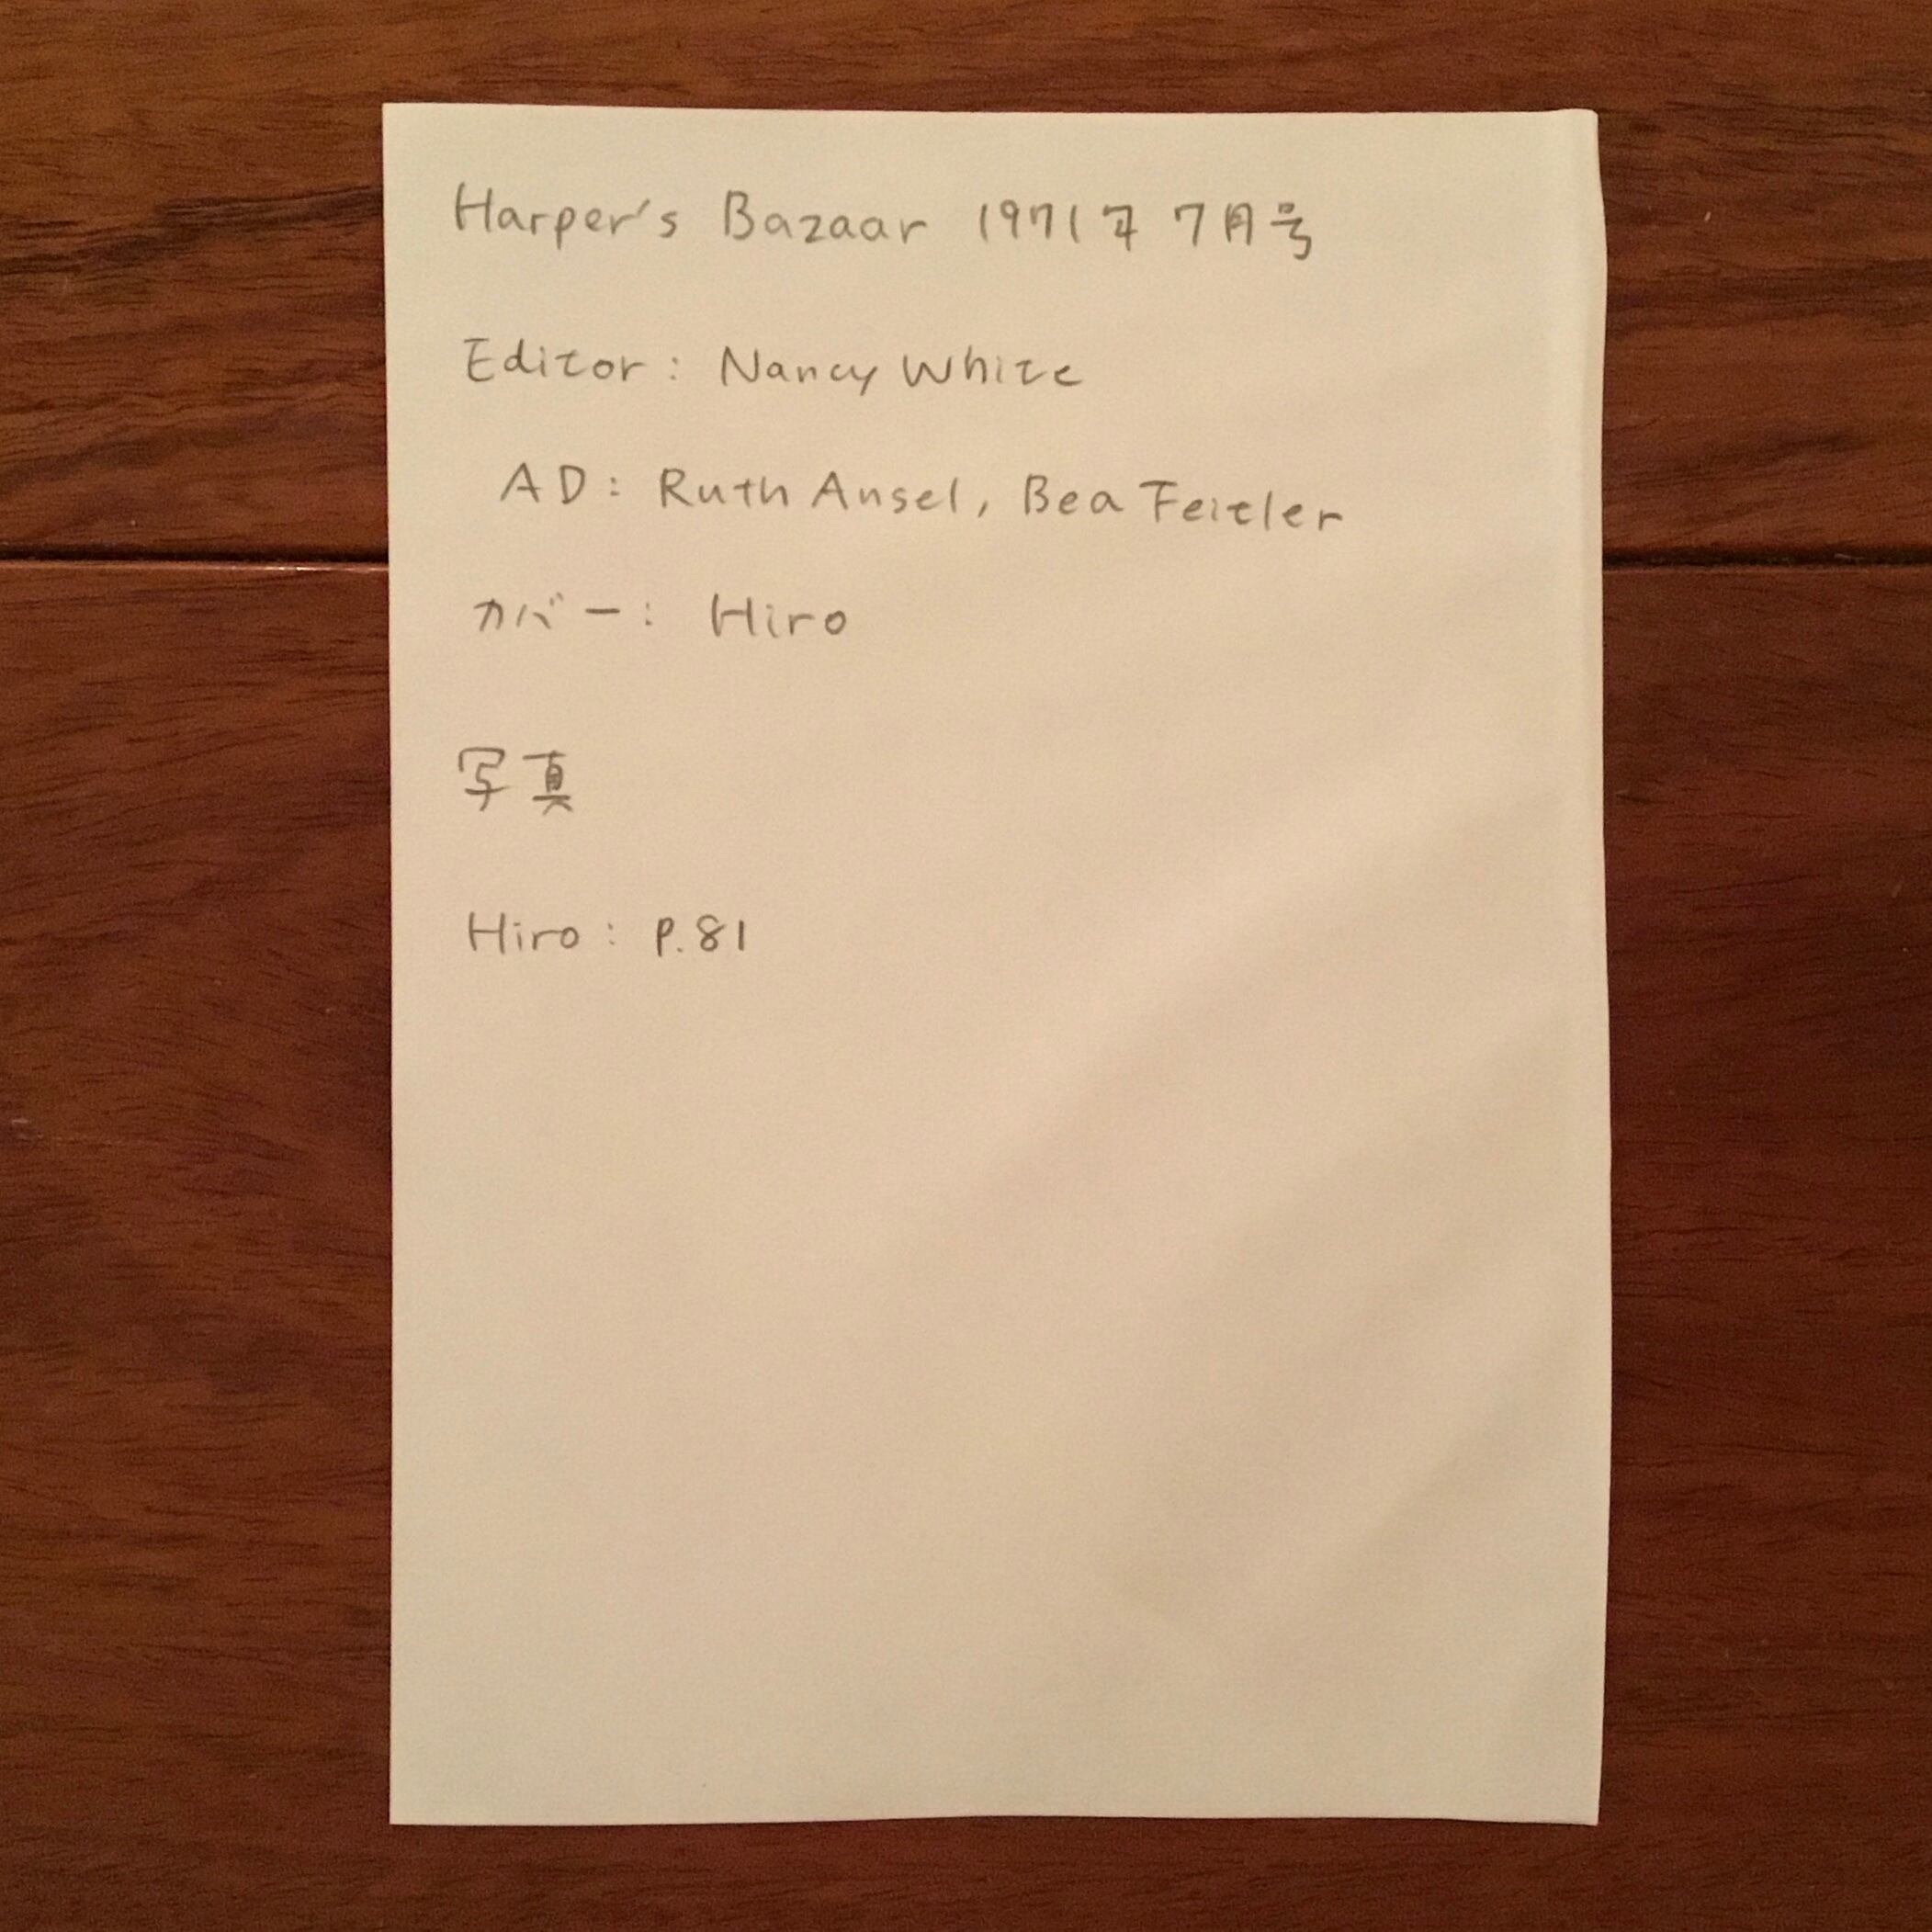 Harper's Bazaar 1971年 7月号
Editor: Nancy White
AD: Ruth Ansel, Bea Feitler
カバー: Hiro
写真
Hiro: P.81